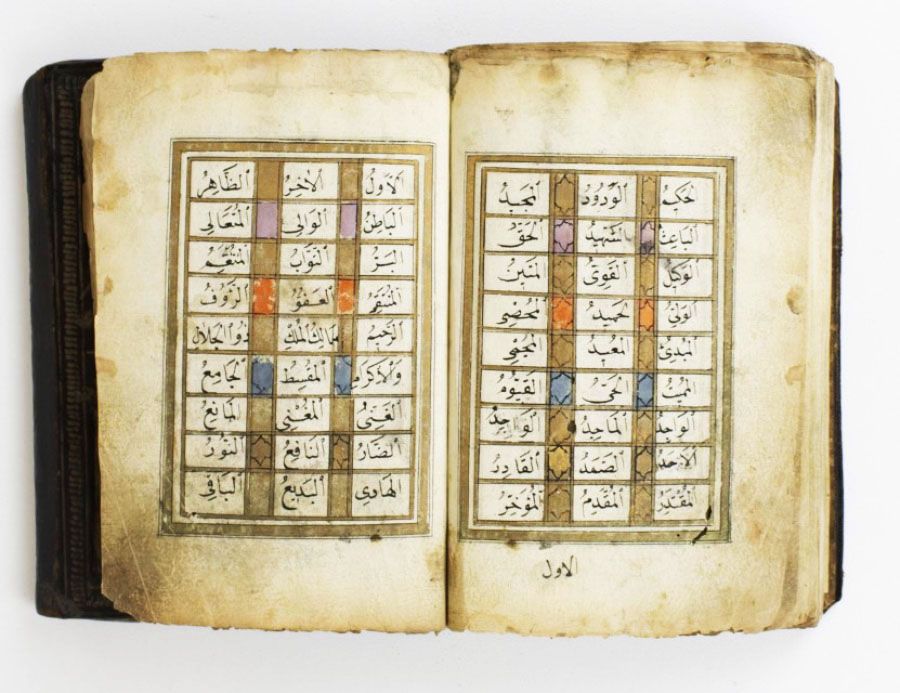 الحكيم الودود المجيد
الباعث الشهيد الحق
الوكيل القوي المتين
الولي الحميد المحصي
المبدئ المعيد المحيي
المميت الحي القيوم
الواجد الماجد الواحد
الاحد الصمد القادر
المقتدر المقدم المؤخر
الاول
الاول الاخر الظاهر
الباطن الوالي المتعالي
البر التواب المنعم
المنتقم العفو الرؤف
الرحيم مالك الملك ذو الجلال
والاكرام المقسط الجامع
الغني المغني المانع
الضار النافع النور
الهادي البديع الباقي